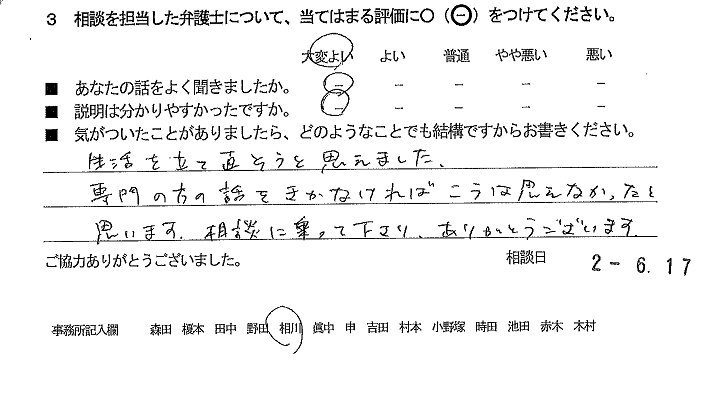 3 相談を担当した弁護士について、当てはまる評価に〇（⊖）をつけてください。
大変よい よい 普通 やや悪い 悪い
■ あなたの話をよく聞きましたか。 － － － － －
■ 説明は分かりやすかったですか。 － － － － －
■ 気がついたことがありましたら、どのようなことでも結構ですからお書きください。
生活を立て直そうと思えました、
専門の方の話をきかなければこうは思えなかったと
思います。相談に乗って下さり、ありがとうございます
ご協力ありがとうございました。 相談日 2-6.17
事務所記入欄 森田 榎本 田中 野田 相川 眞中 申 吉田 村本 小野塚 時田 池田 赤木 木村